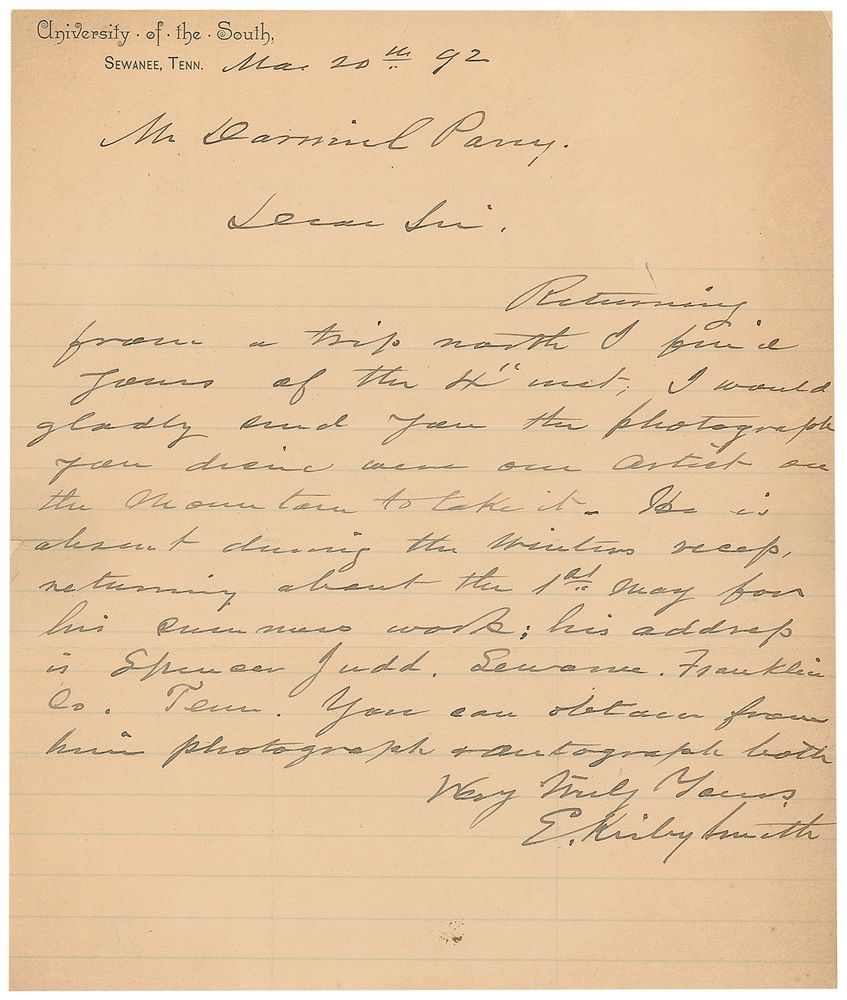 University · of · the · South,
SEWANEE, TENN. Mar 20th 92
Mr Parry.
Dear Sir.
Returning
from a trip north I find
yours of the 4" inst; I would
gladly send you the photograph
you desire were our artist on
the Mountain to take it. He is
absent during the Winters recess,
returning about the 1st May for
his summers work; his address
is Spencer Judd. Sewanee. Franklin
Co. Tenn. You can obtain from
him photograph & autograph both
Very Truly Yours
E. Kirby Smith